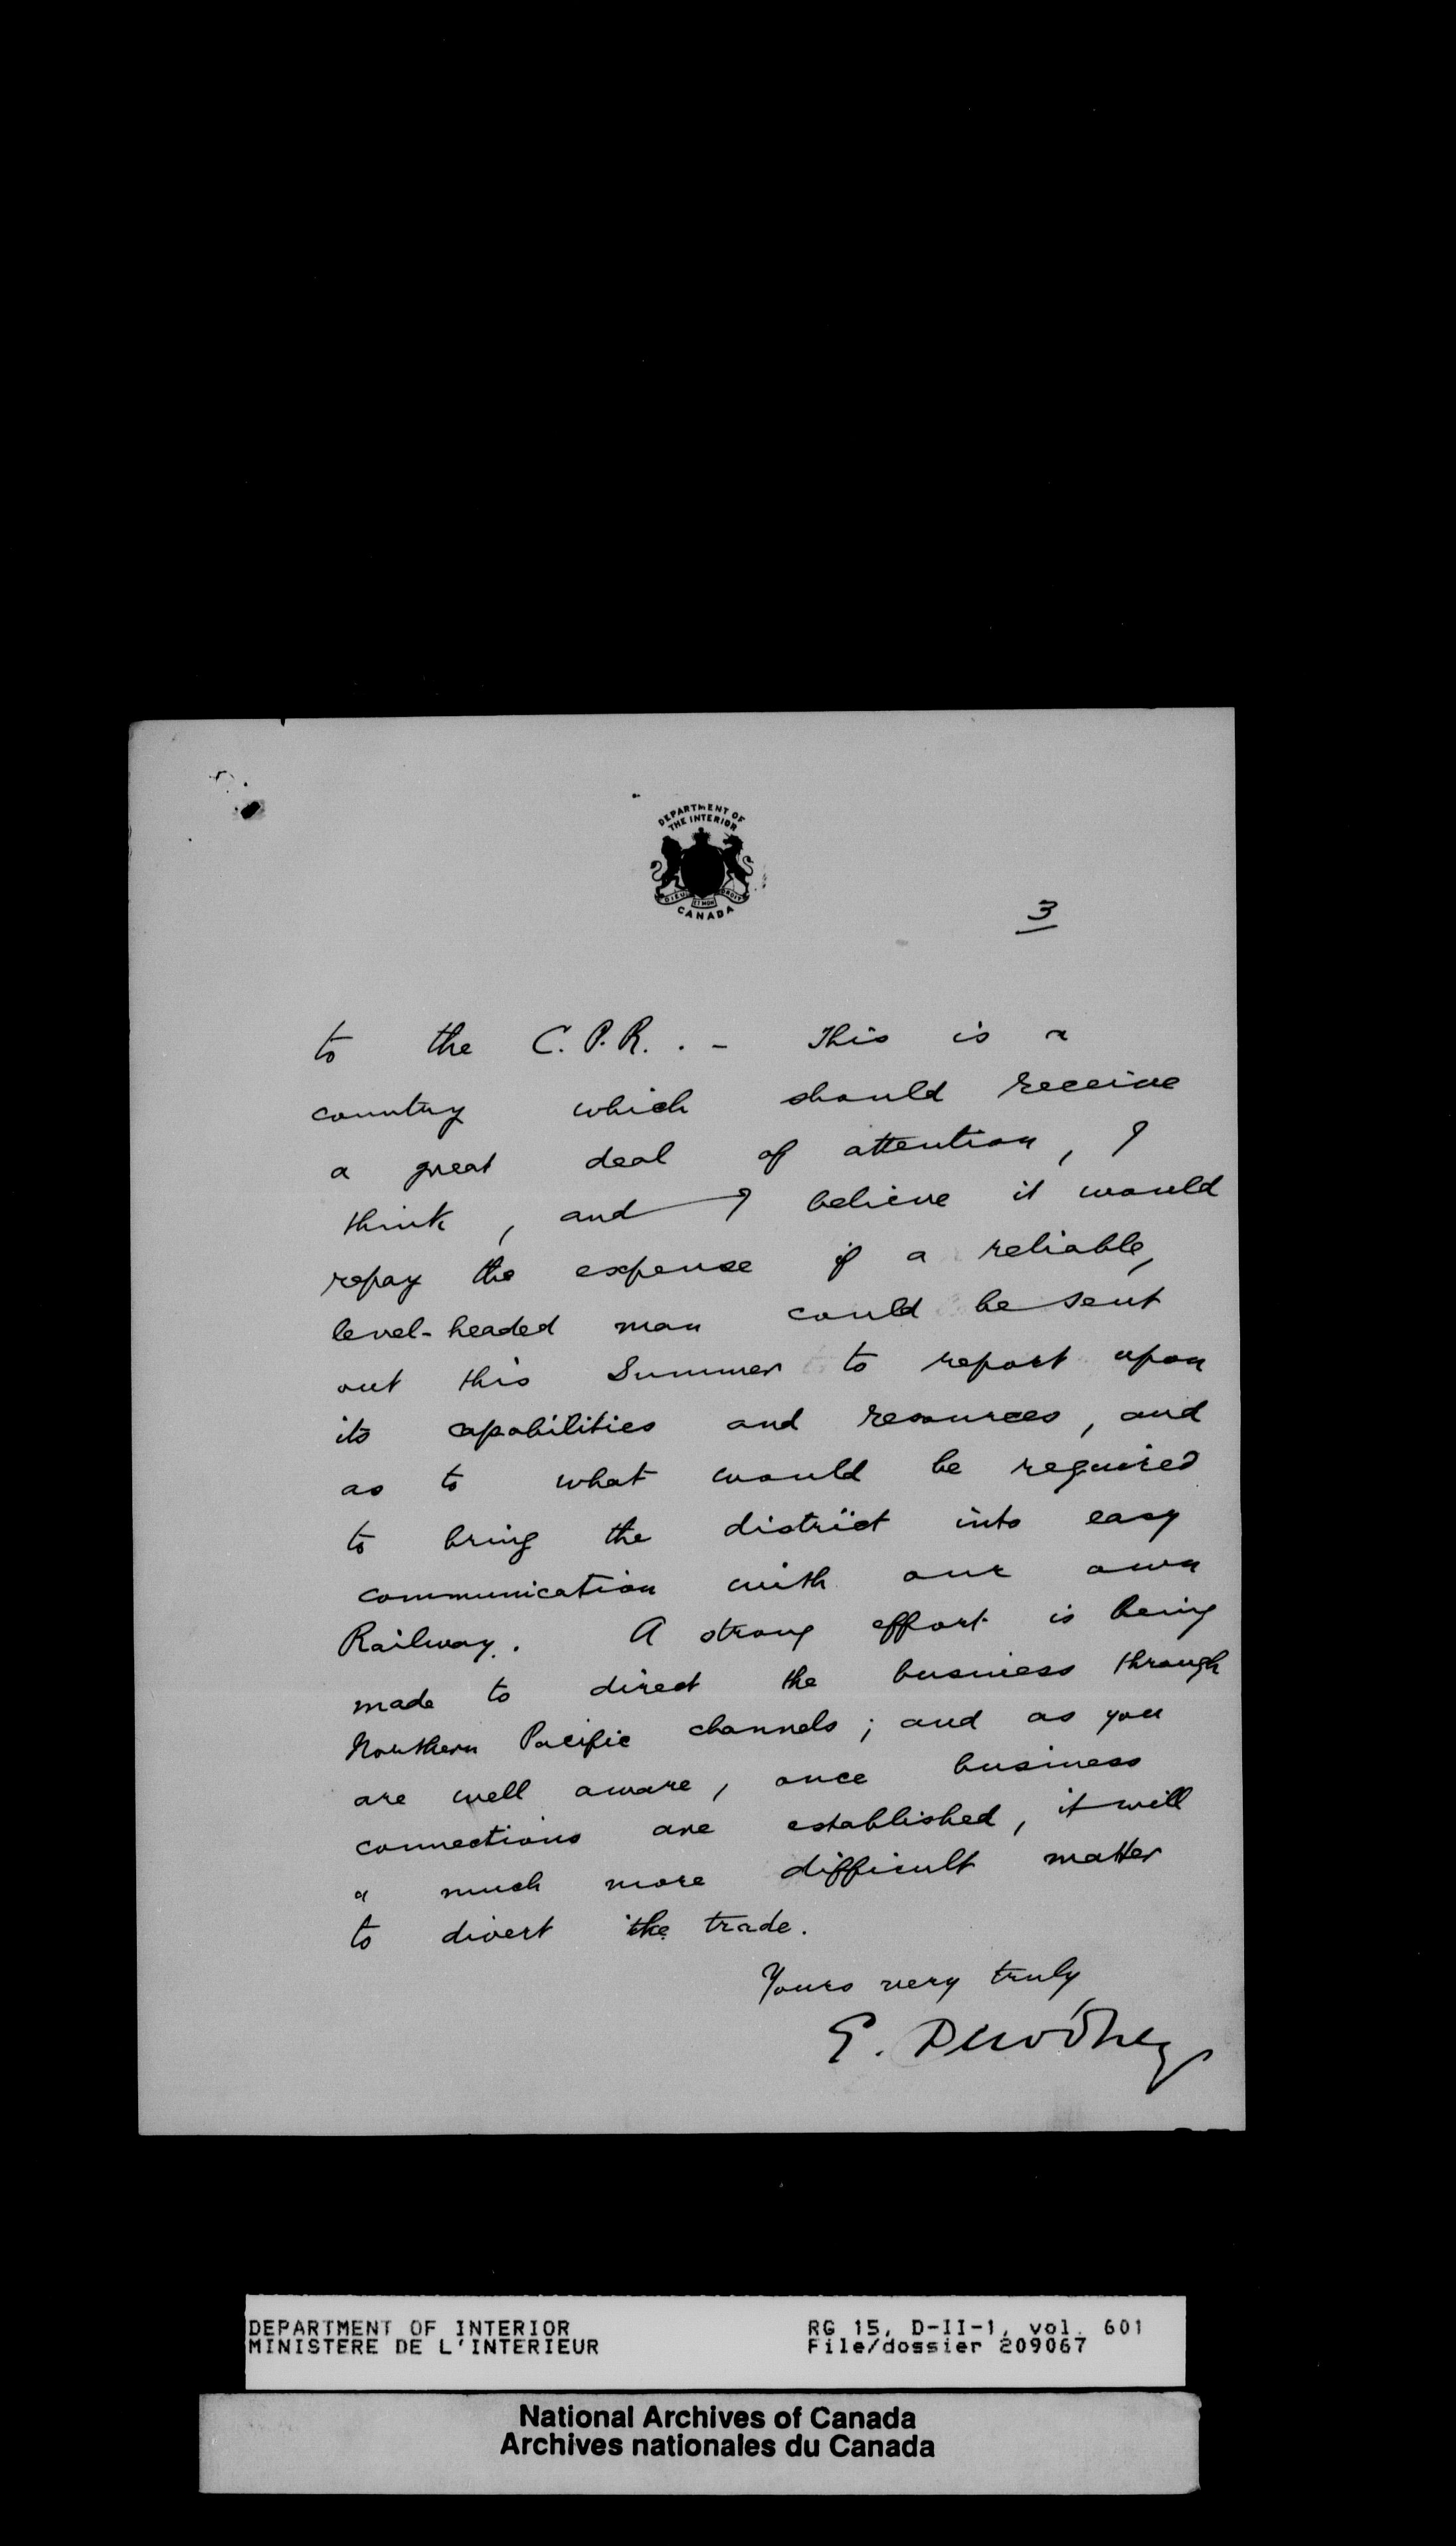 DEPARTMENT OF
THE INTERIOR
DIEU ET MON DROIT
CANADA
3
to the C.P.R. . - This is a
country which should receive
a great deal of attention, I
think, and I believe it would
repay the expense if a reliable,
level-headed man could be sent
out this Summer to report upon
its capabilities and resources, and
as to what would be required
to bring the district into easy
communication with our own
Railway. A strong effort is being
made to direct the business through
Northern Pacific channels; and as you
are well aware, once business
connections are established, it will
a much more difficult matter
to divert the trade.
Yours very truly
E. Dewdney
DEPARTMENT OF INTERIOR
MINISTERE DE L'INTERIEUR
RG 15, D-II-1, vol. 601
File/dossier 209067
National Archives of Canada
Archives nationales du Canada